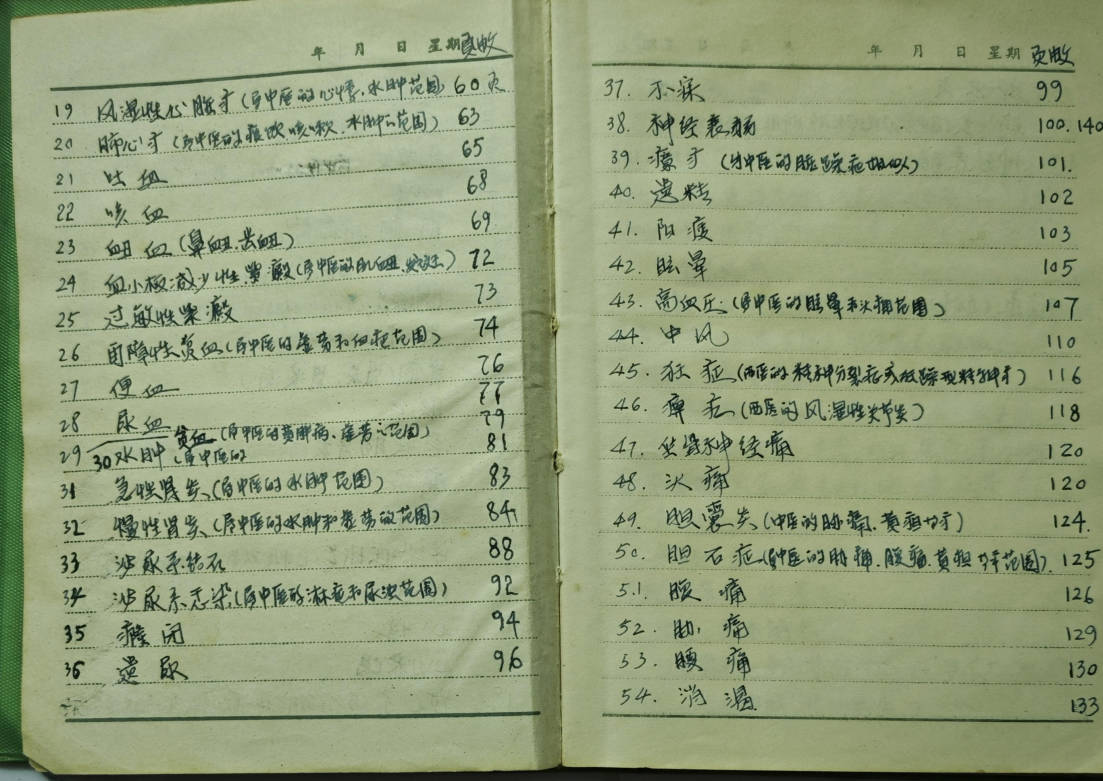 年 月 日 星期 页数
19 风湿性心脏才(属中医的心悸、水肿范围) 60页
20 肺心才(属中医的痰饮咳嗽、水肿的范围) 63
21 吐血 65
22 咳血 68
23 衄血(鼻衄、齿衄) 69
24 血小板减少性紫癜(属中医的肌衄、发斑) 72
25 过敏性紫癜 73
26 再障性贫血(属中医的虚劳和血症范围) 74
27 便血 76
28 尿血 77
29 贫血(属中医的黄肿病、虚劳之范围) 79
30 水肿(属中医的 81
31 急性肾炎(属中医的水肿范围) 83
32 慢性肾炎(属中医的水肿和虚劳的范围) 84
33 泌尿系结石 88
34 泌尿系感染(属中医的淋症和尿浊范围) 92
35 癃闭 94
36 遗尿 96
年 月 日 星期 页数
37. 不寐 99
38. 神经衰弱 100.140
39. 癔才(与中医的脏躁症相似) 101.
40. 遗精 102
41. 阳痿 103
42. 眩晕 105
43. 高血压(属中医的眩晕和头痛范围) 107
44. 中风 110
45. 狂症(西医的精神分裂症或狂躁型精神才) 116
46. 痹症(西医的风湿性关节炎) 118
47. 坐骨神经痛 120
48. 头痛 120
49. 胆囊炎(中医的胁痛、黄疸才) 124.
50. 胆石症(属中医的胁痛、腹痛、黄疸等范围) 125
51. 腹痛 126
52. 胁痛 129
53. 腰痛 130
54. 消渴 133